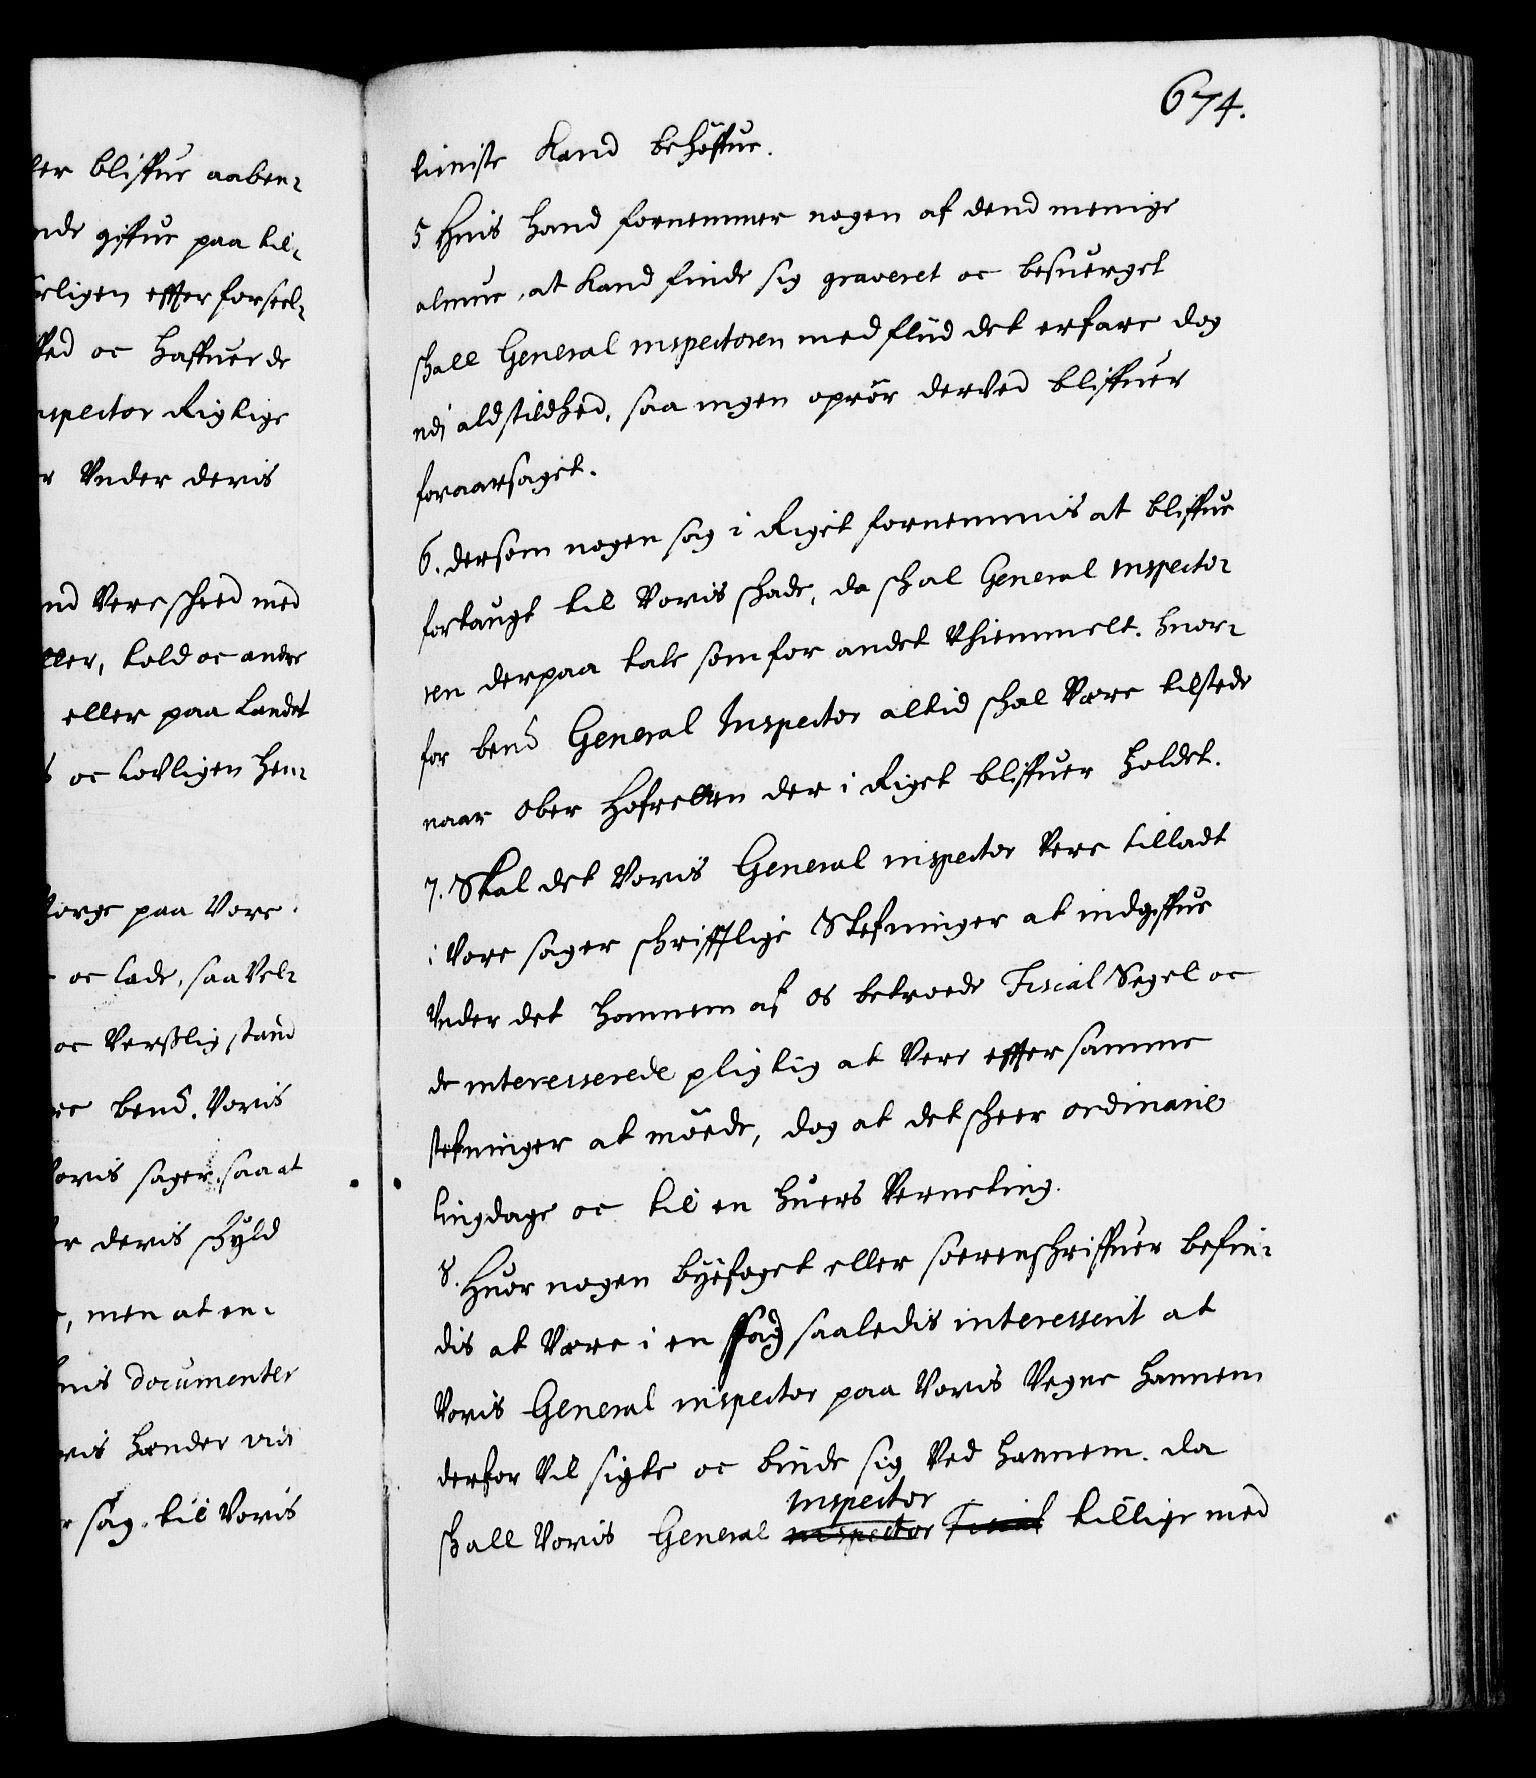 ler bliffue aaben-
nde giffue paa til-
erligen effter forseel-
ffed oc Haffuer de
nspector Rigtige
r Vnder deris
nd Vere scheed med
ller, told oc andre
eller paa Landet
s oc Lovligen hen-
torge paa Vore
oc lade, saa Vel-
oc Verßlig stand
re bend. Voris
Voris sager, saa at
er deris schyld
, men at en-
fnis documenter
ris hænder vid
r sag. til Voris
674.
tieniste Kand behøffue.
5 Huis hand fornemmer nogen af dend menige
almue, at Kand finde sig graveret oc besuerget
schall General inspectoren med fliid det erfare dog
udi ald stilldhed, saa ingen oprör derved bliffuer
foraarsaget.
6. dersom nogen sag i Riget fornemmis at bliffue
fortaugt til Voris schade, da schal General inspecto-
ren derpaa tale som for andet Vhiemmelt. huor-
for bend General Inspector altid schal Være tilstede
naar Ober Hofretten der i Riget bliffuer holdet.
7. Skal det Voris General inspector Vere tilladt
i Vore sager schrifftlige Stefninger at indgiffue
Vnder det hannem af os betroede Fiscal Segel oc
de interesserede pligtig at Vere effter samme
stefninger at möede, dog at det scheer ordinarie
tingdage oc til en huers Verneting.
8. Huor nogen byefoget eller sorenschriffuer befin-
dis at Være i en sag saaledis interesserit at
Voris General inspector paa Voris Vegne hannem
derfor Vil sigte oc binde sig Ved hannem. da
inspector
schall Voris General inspector Fiscal tillige med